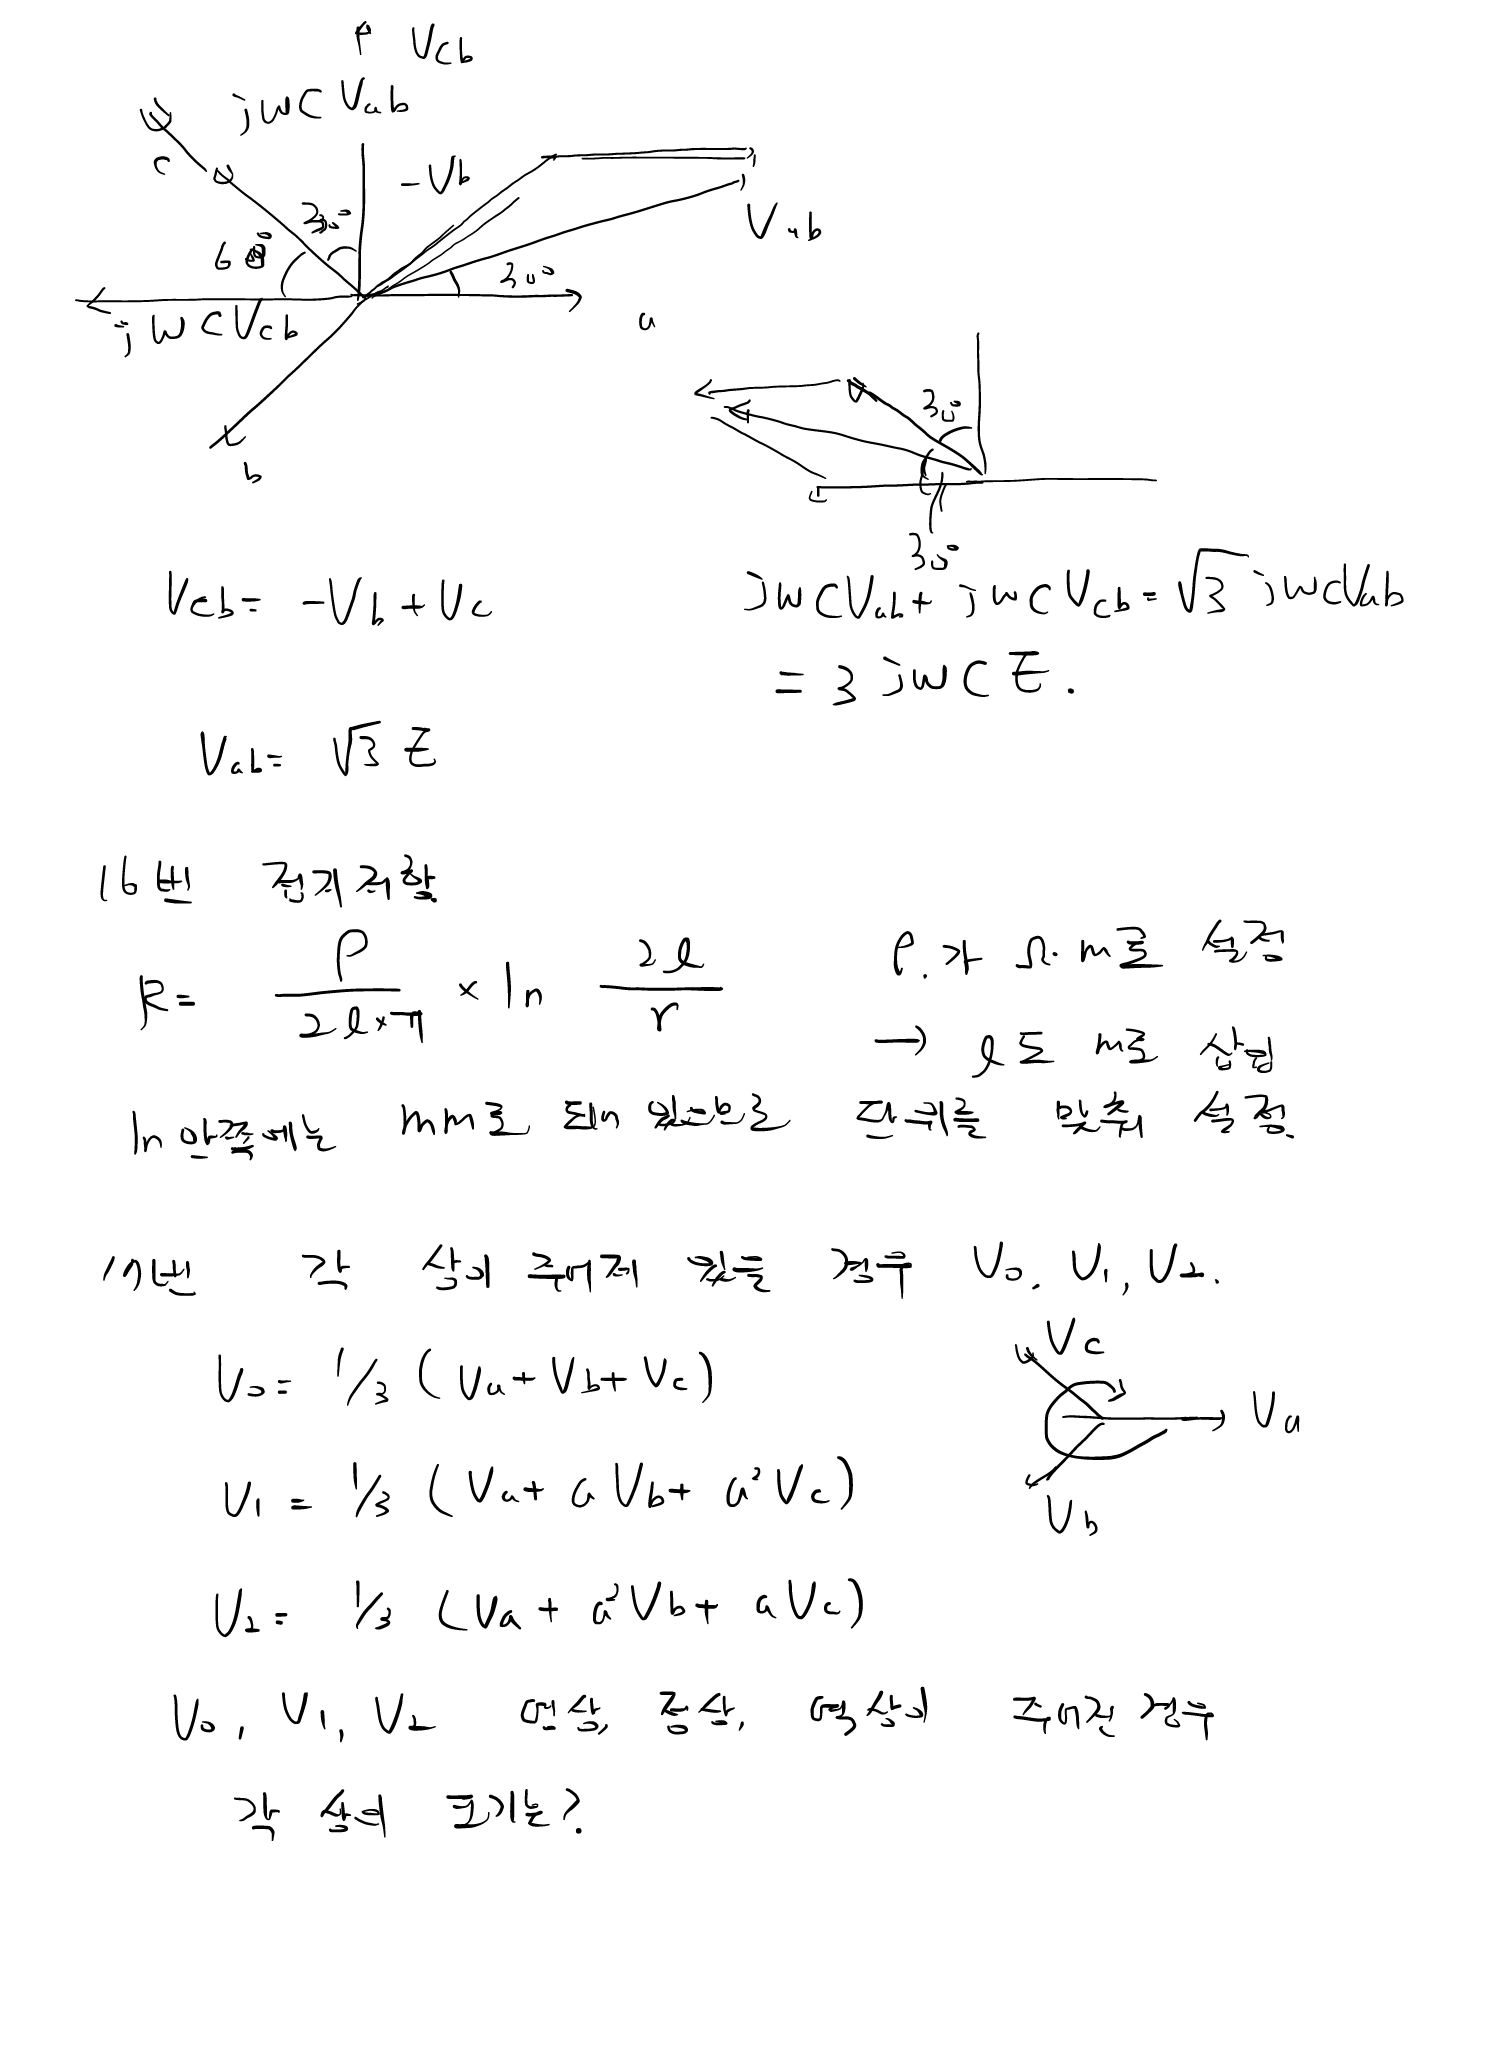 Vcb
jwC Vab
c
-Vb
30°
60°
Vab
30°
jwCVcb
a
b
30°
30°
Vcb = -Vb + Vc
jwCVab + jwCVcb = √3 jwCVab
= 3 jwCE.
Vab = √3 E
16번 접지저항
R = ρ / 2l×π × ln 2l / r
ρ.가 Ω·m로 설정
→ l도 m로 삽입
ln 안쪽에는 mm로 되어 있으므로 단위를 맞춰 설정.
17번 각 상이 주어져 있을 경우 V₀, V₁, V₂.
V₀ = 1/3 (Va + Vb + Vc)
Vc
Va
Vb
V₁ = 1/3 (Va + aVb + a²Vc)
V₂ = 1/3 (Va + a²Vb + aVc)
V₀, V₁, V₂ 영상, 정상, 역상이 주어진 경우
각 상의 크기는?